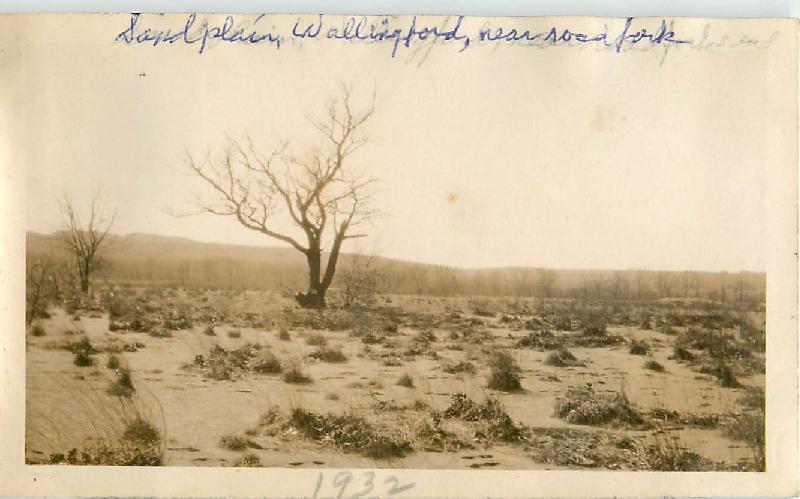 Sandplain, Wallingford, near road fork
1932